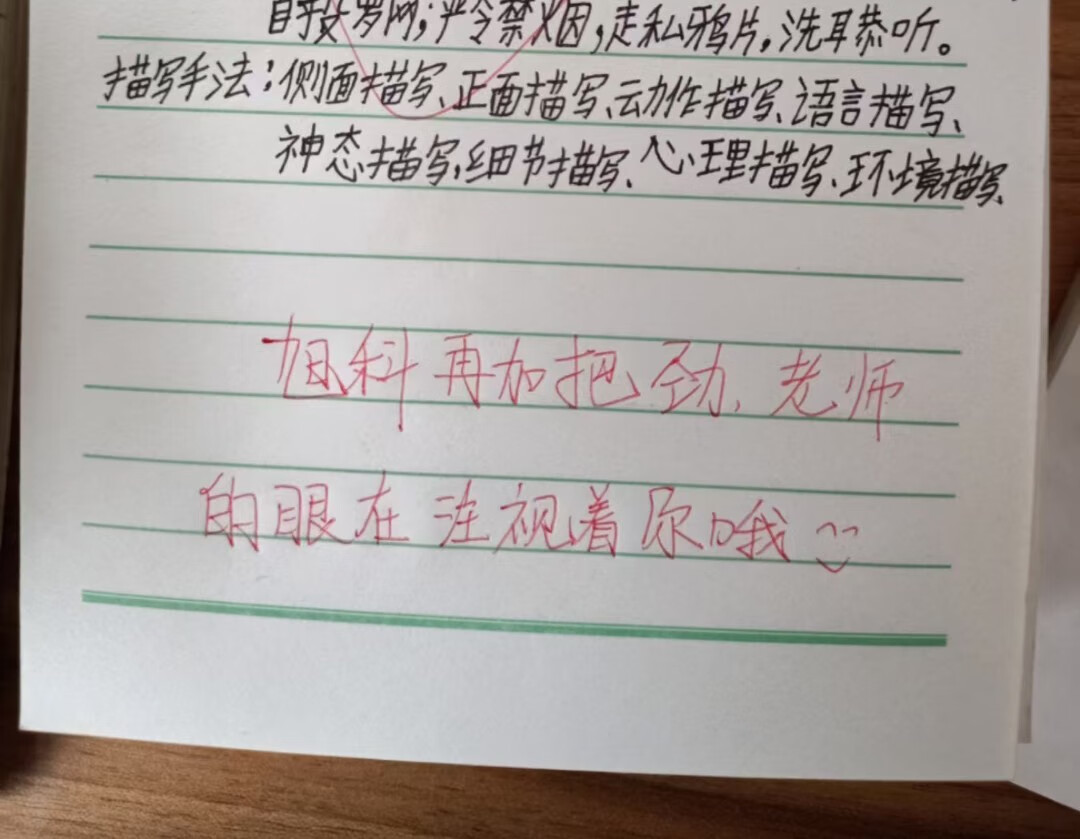 自投罗网；严令禁烟，走私鸦片，洗耳恭听。
描写手法：侧面描写、正面描写、动作描写、语言描写、
神态描写，细节描写、心理描写、环境描写、
旭科再加把劲，老师
的眼在注视着你哦